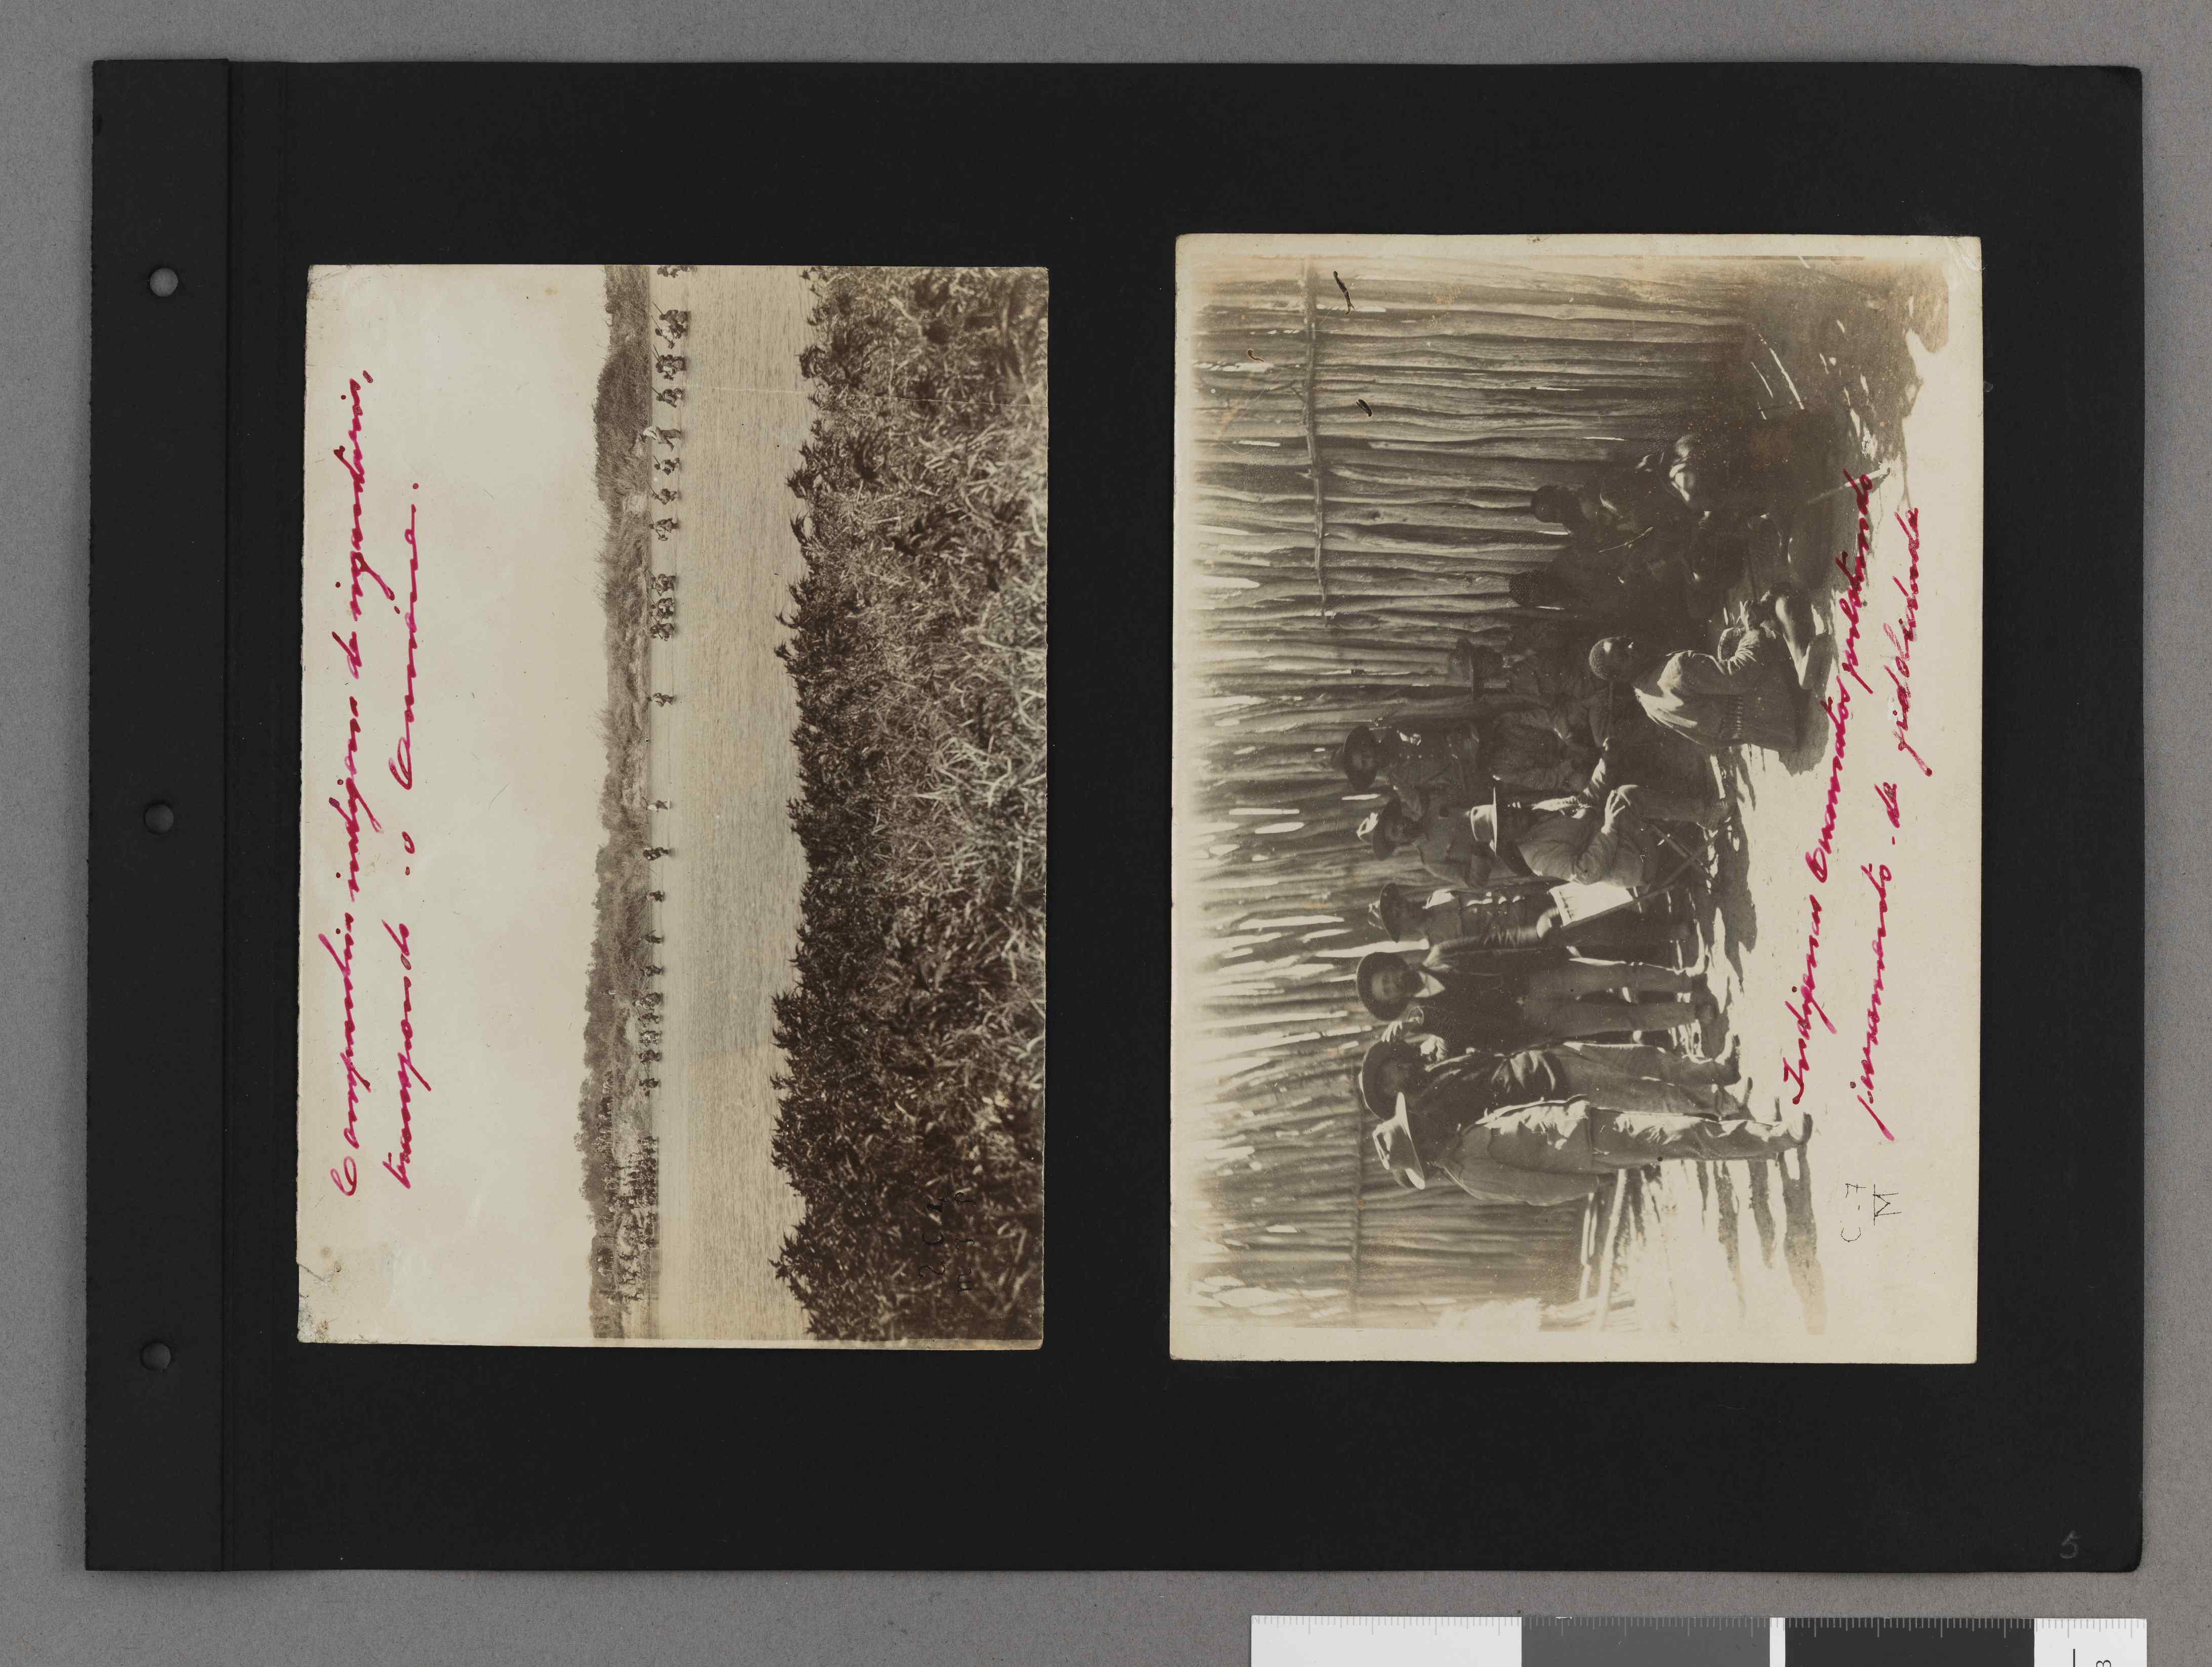 Companhia indigena de
transpondo o Cunene.
Indigenas Cuamatos prestando
juramento de fidelidade
C-7
M
5